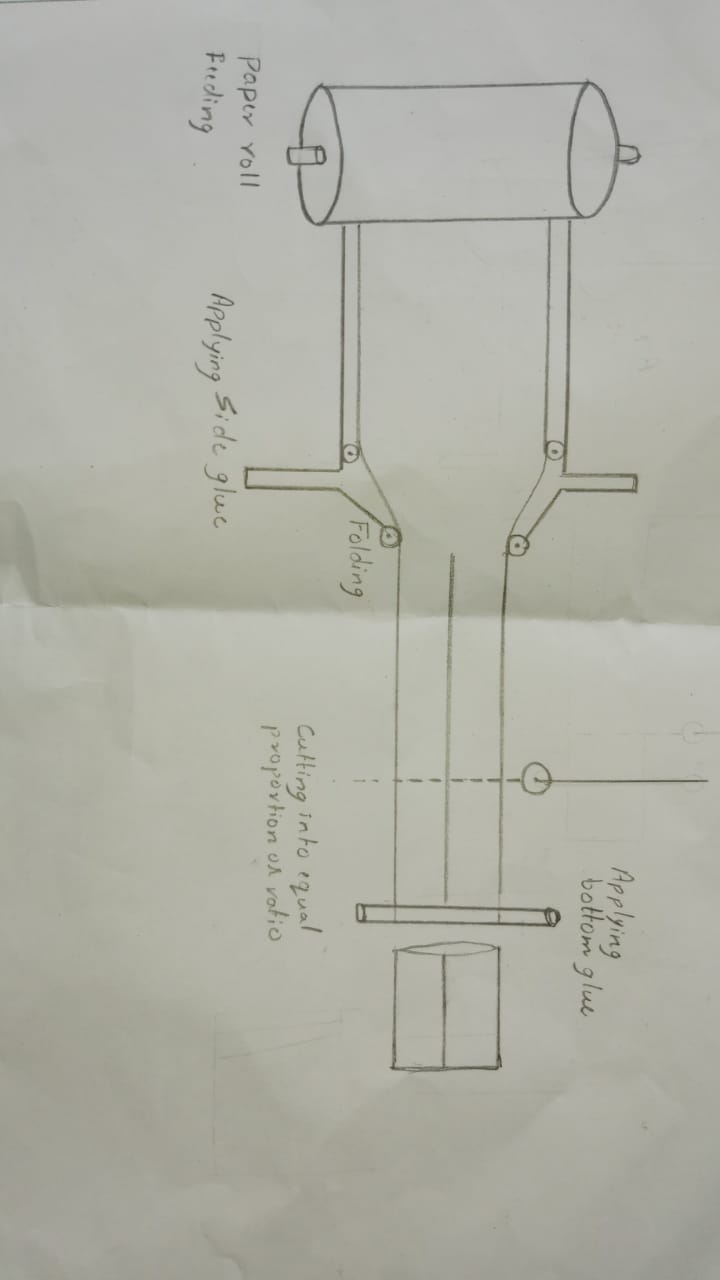 Paper roll
Feeding
Applying Side glue
Folding
Cutting into equal
proportion or ratio
Applying
bottom glue